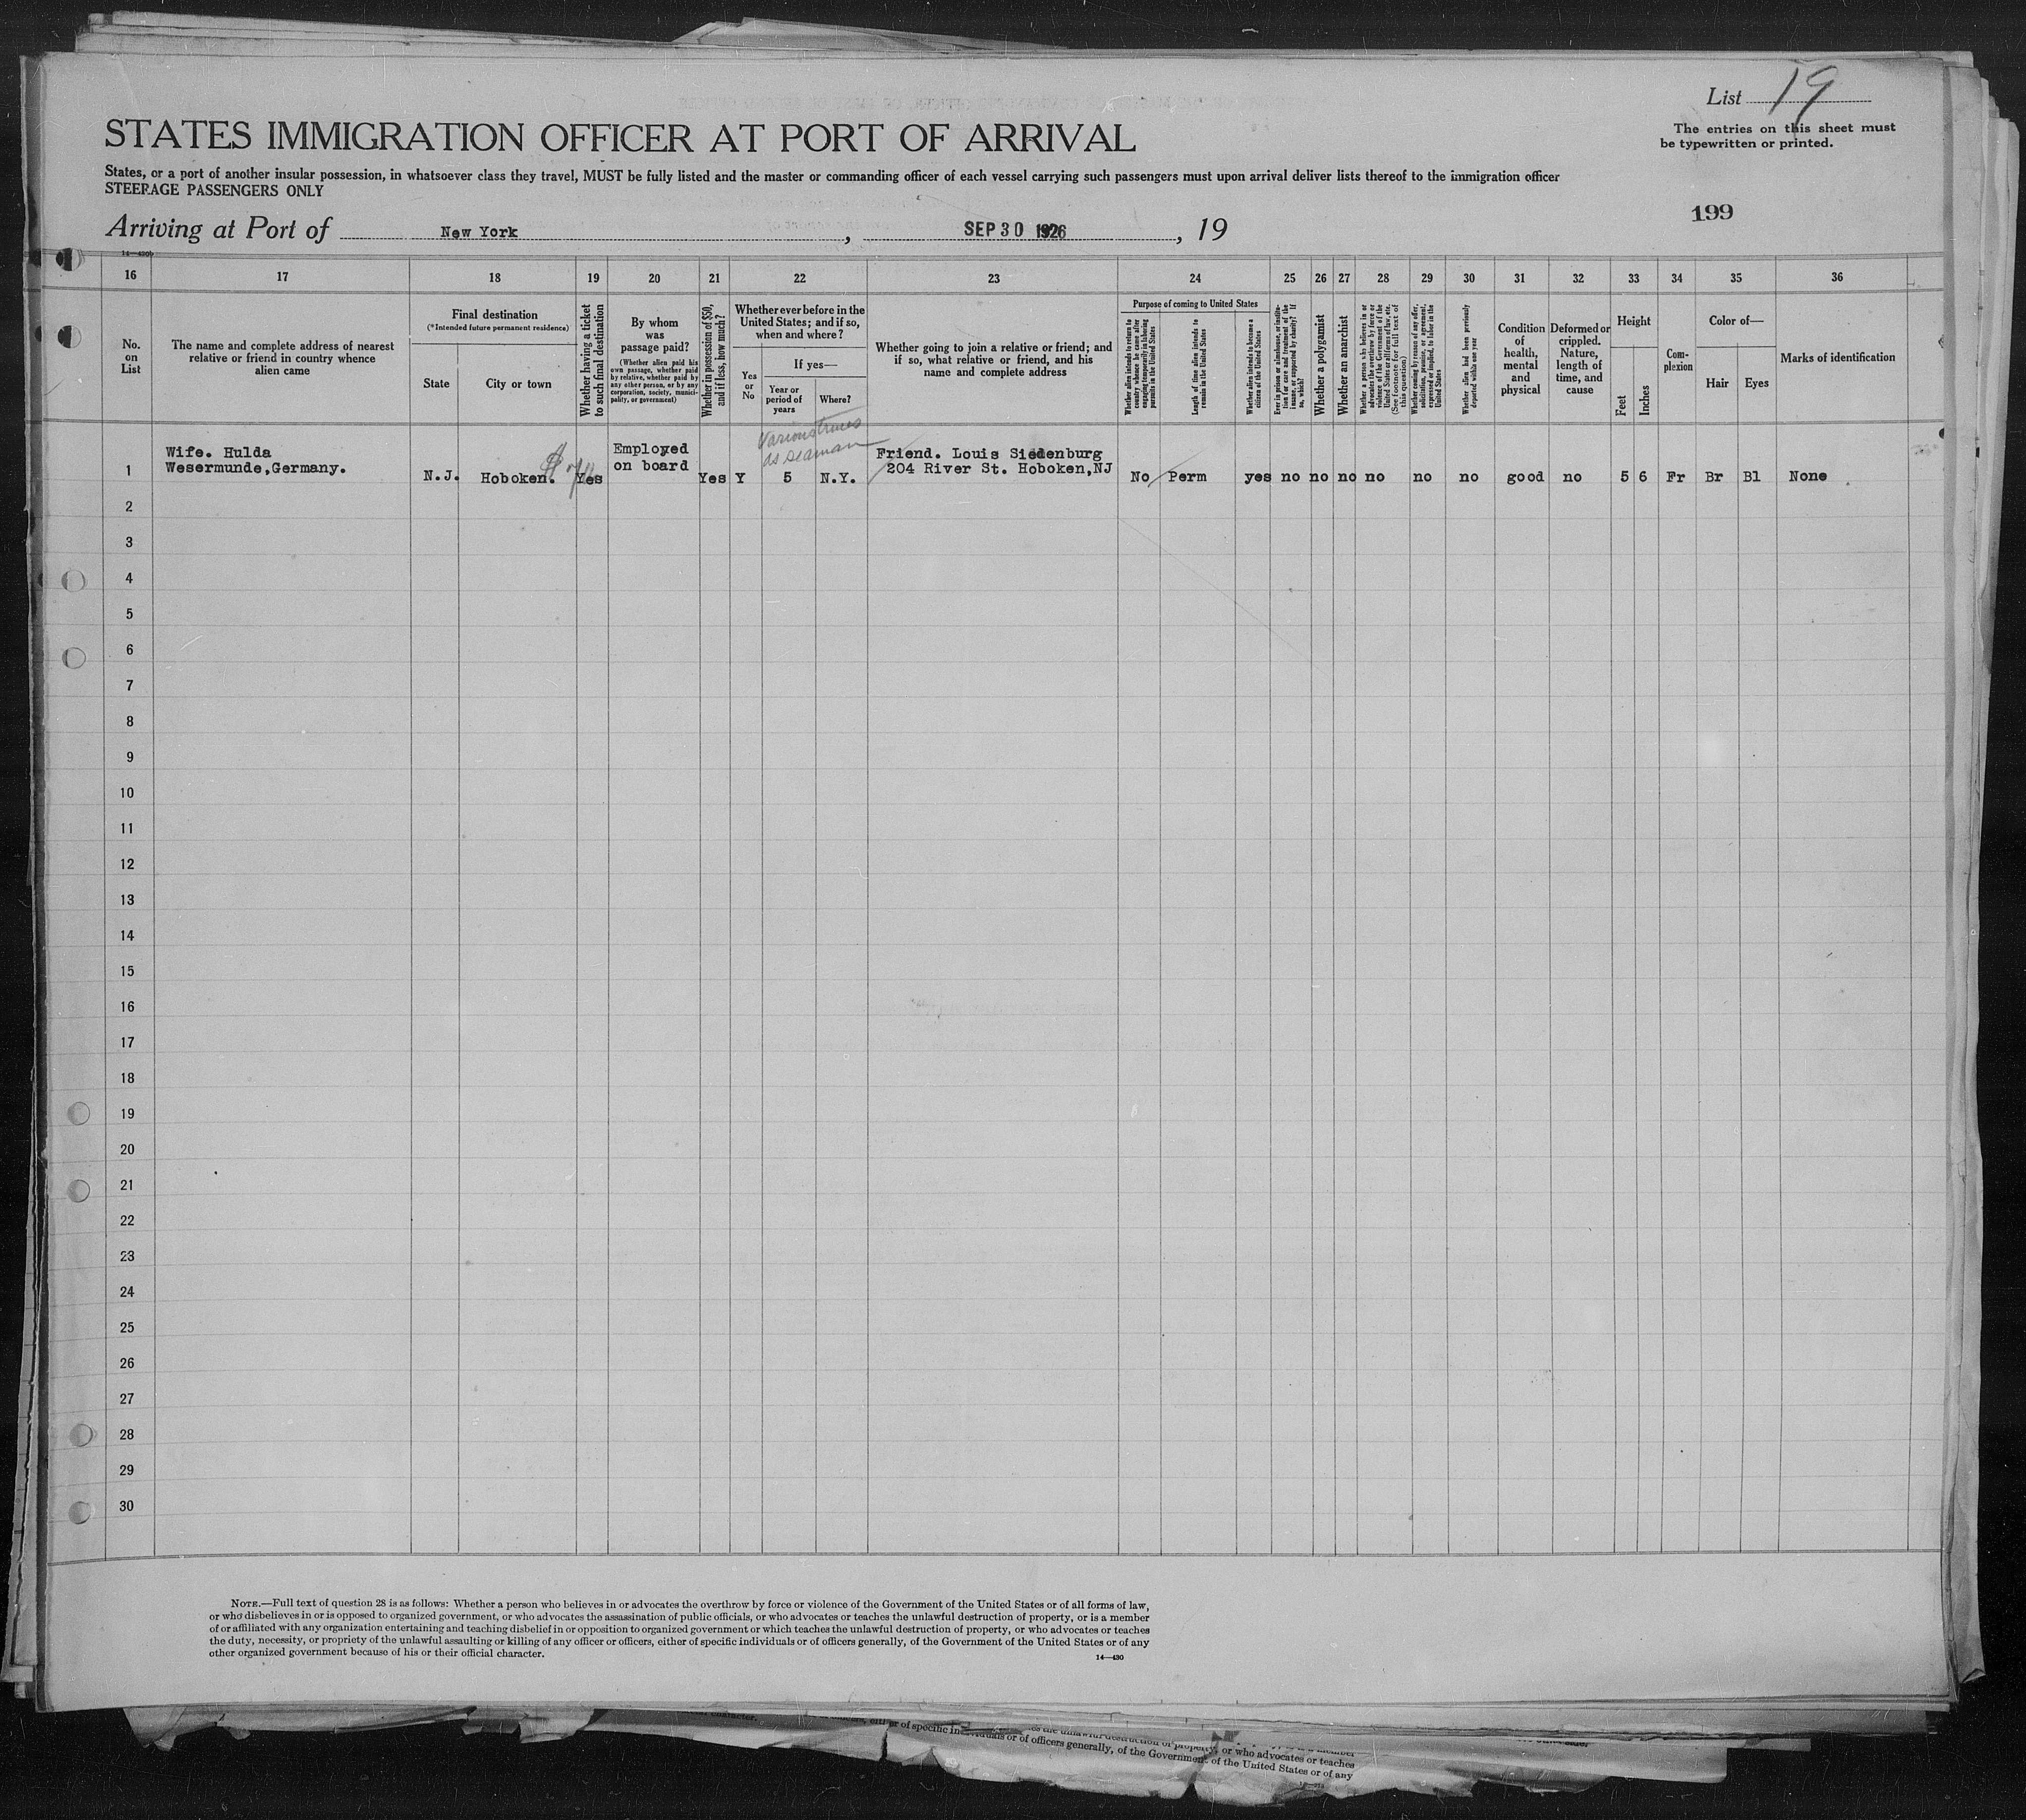 List 19
The entries on this sheet must
be typewritten or printed.
STATES IMMIGRATION OFFICER AT PORT OF ARRIVAL
States, or a port of another insular possession, in whatsoever class they travel, MUST be fully listed and the master or commanding officer of each vessel carrying such passengers must upon arrival deliver lists thereof to the immigration officer
STEERAGE PASSENGERS ONLY
199
Arriving at Port of New York, SEP 30 1926, 19
14—430
16 17 18 19 20 21 22 23 24 25 26 27 28 29 30 31 32 33 34 35 36
No.
on
List
The name and complete address of nearest
relative or friend in country whence
alien came
Final destination
(*Intended future permanent residence)
State
City or town
Whether having a ticket
to such final destination
By whom
was
passage paid?
(Whether alien paid his
own passage, whether paid
by relative, whether paid by
any other person, or by any
corporation, society, munici-
pality, or government)
Whether in possession of $50,
and if less, how much?
Whether ever before in the
United States; and if so,
when and where?
Yes
or
No
If yes—
Year or
period of
years
Where?
Whether going to join a relative or friend; and
if so, what relative or friend, and his
name and complete address
Purpose of coming to United States
Whether alien intends to return to
country whence he came after
engaging temporarily in laboring
pursuits in the United States
Length of time alien intends to
remain in the United States
Whether alien intends to become a
citizen of the United States
Ever in prison or almshouse, or institu-
tion for care and treatment of the
insane, or supported by charity? If
so, which?
Whether a polygamist
Whether an anarchist
Whether a person who believes in or
advocates the overthrow by force or
violence of the Government of the
United States or all forms of law, etc.
(See footnote for full text of
this question)
Whether coming by reason of any offer,
solicitation, promise, or agreement,
expressed or implied, to labor in the
United States
Whether alien had been previously
deported within one year
Condition
of
health,
mental
and
physical
Deformed or
crippled.
Nature,
length of
time, and
cause
Height
Feet
Inches
Com-
plexion
Color of—
Hair
Eyes
Marks of identification
Various times
as seaman
Wife. Hulda
Wesermunde,Germany.
Employed
on board
Friend. Louis Siedenburg
204 River St. Hoboken,NJ
1 N.J. Hoboken. Yes Yes Y 5 N.Y. No Perm yes no no no no no no good no 5 6 Fr Br Bl None
2
3
4
5
6
7
8
9
10
11
12
13
14
15
16
17
18
19
20
21
22
23
24
25
26
27
28
29
30
NOTE.—Full text of question 28 is as follows: Whether a person who believes in or advocates the overthrow by force or violence of the Government of the United States or of all forms of law,
or who disbelieves in or is opposed to organized government, or who advocates the assassination of public officials, or who advocates or teaches the unlawful destruction of property, or is a member
of or affiliated with any organization entertaining and teaching disbelief in or opposition to organized government or which teaches the unlawful destruction of property, or who advocates or teaches
the duty, necessity, or propriety of the unlawful assaulting or killing of any officer or officers, either of specific individuals or of officers generally, of the Government of the United States or of any
other organized government because of his or their official character.
14—430
or who advocates or teaches
of officers generally, of the Government of the United States or of any